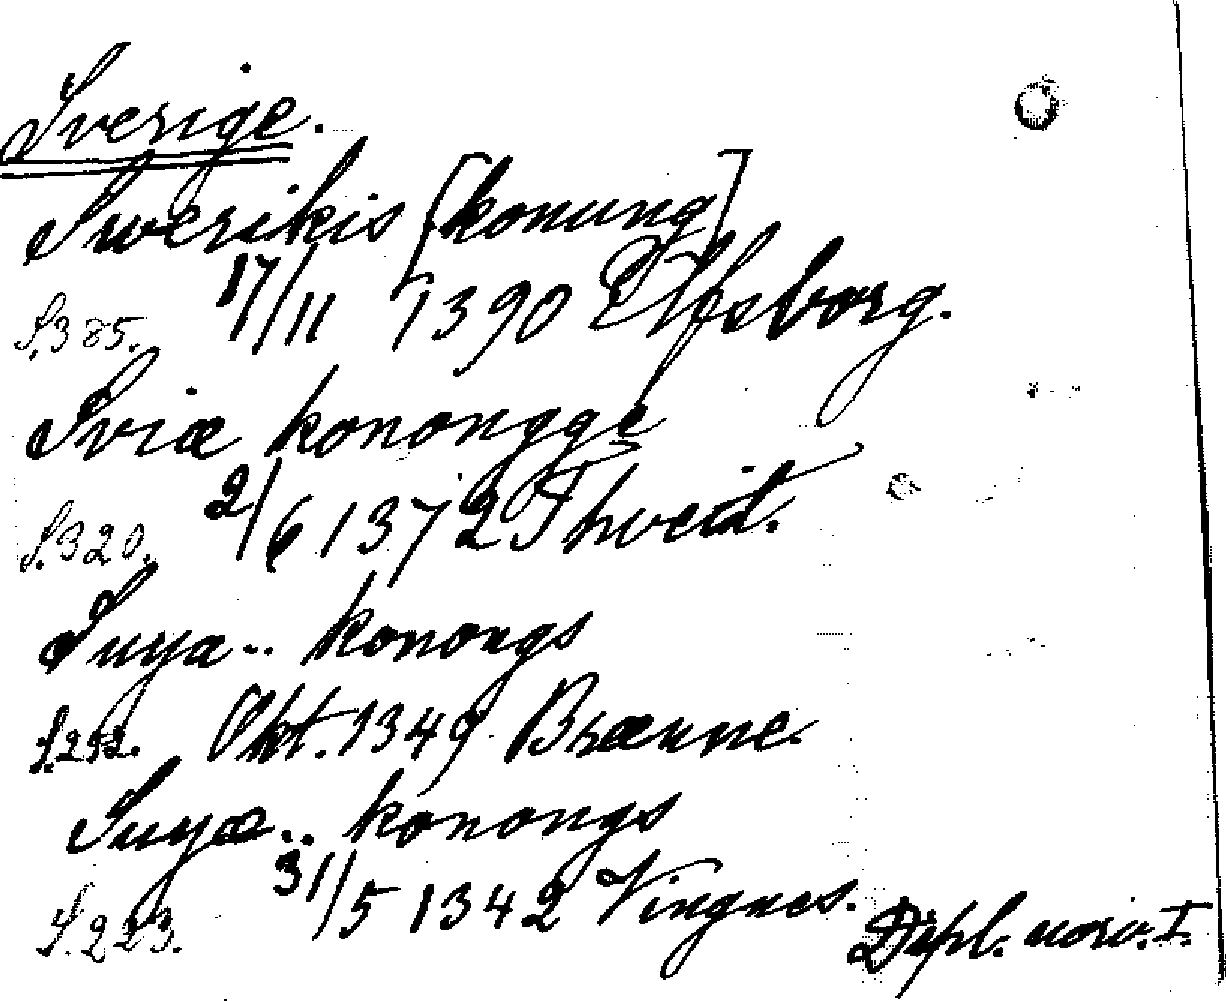 Sverige.
Swerikis [konung]
S. 385. 17/11 1390 Elfsborg.
Sviæ konongge
S. 320. 2/6 1372 Thveit.
Suya.. konongs
S. 292. Okt. 1349 Bræunne.
Suyæ.. konongs
S. 223. 31/5 1342 Vingnes.
Dipl. norv. I.